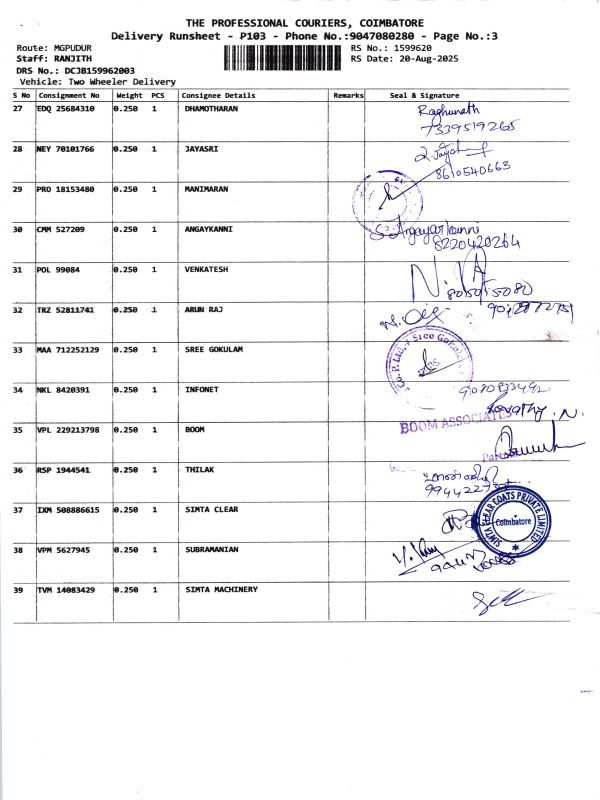 THE PROFESSIONAL COURIERS, COIMBATORE
Delivery Runsheet - P103 - Phone No.:9047080280 - Page No.:3
Route: MGPUDUR RS No.: 1599620
Staff: RANJITH RS Date: 20-Aug-2025
DRS No.: DCJB159962003
Vehicle: Two Wheeler Delivery
S No Consignment No Weight PCS Consignee Details Remarks Seal & Signature
27 EDQ 25684310 0.250 1 DHAMOTHARAN Raghunath
7339519265
28 NEY 70101766 0.250 1 JAYASRI
8610540663
29 PRO 18153480 0.250 1 MANIMARAN
30 CMM 527209 0.250 1 ANGAYKANNI S. Angayarkanni
8220420264
31 POL 99084 0.250 1 VENKATESH
8050155080
32 TRZ 52811741 0.250 1 ARUN RAJ
33 MAA 712252129 0.250 1 SREE GOKULAM Co. P. Ltd. * Sree Gokulam
34 NKL 8420391 0.250 1 INFONET
Revathy . N.
35 VPL 229213798 0.250 1 BOOM BOOM ASSOCIATES
36 RSP 1944541 0.250 1 THILAK
37 IXM 508886615 0.250 1 SIMTA CLEAR SIMTA CLEAR COATS PRIVATE LIMITED
Coimbatore
38 VPM 5627945 0.250 1 SUBRAMANIAN
39 TVM 14083429 0.250 1 SIMTA MACHINERY